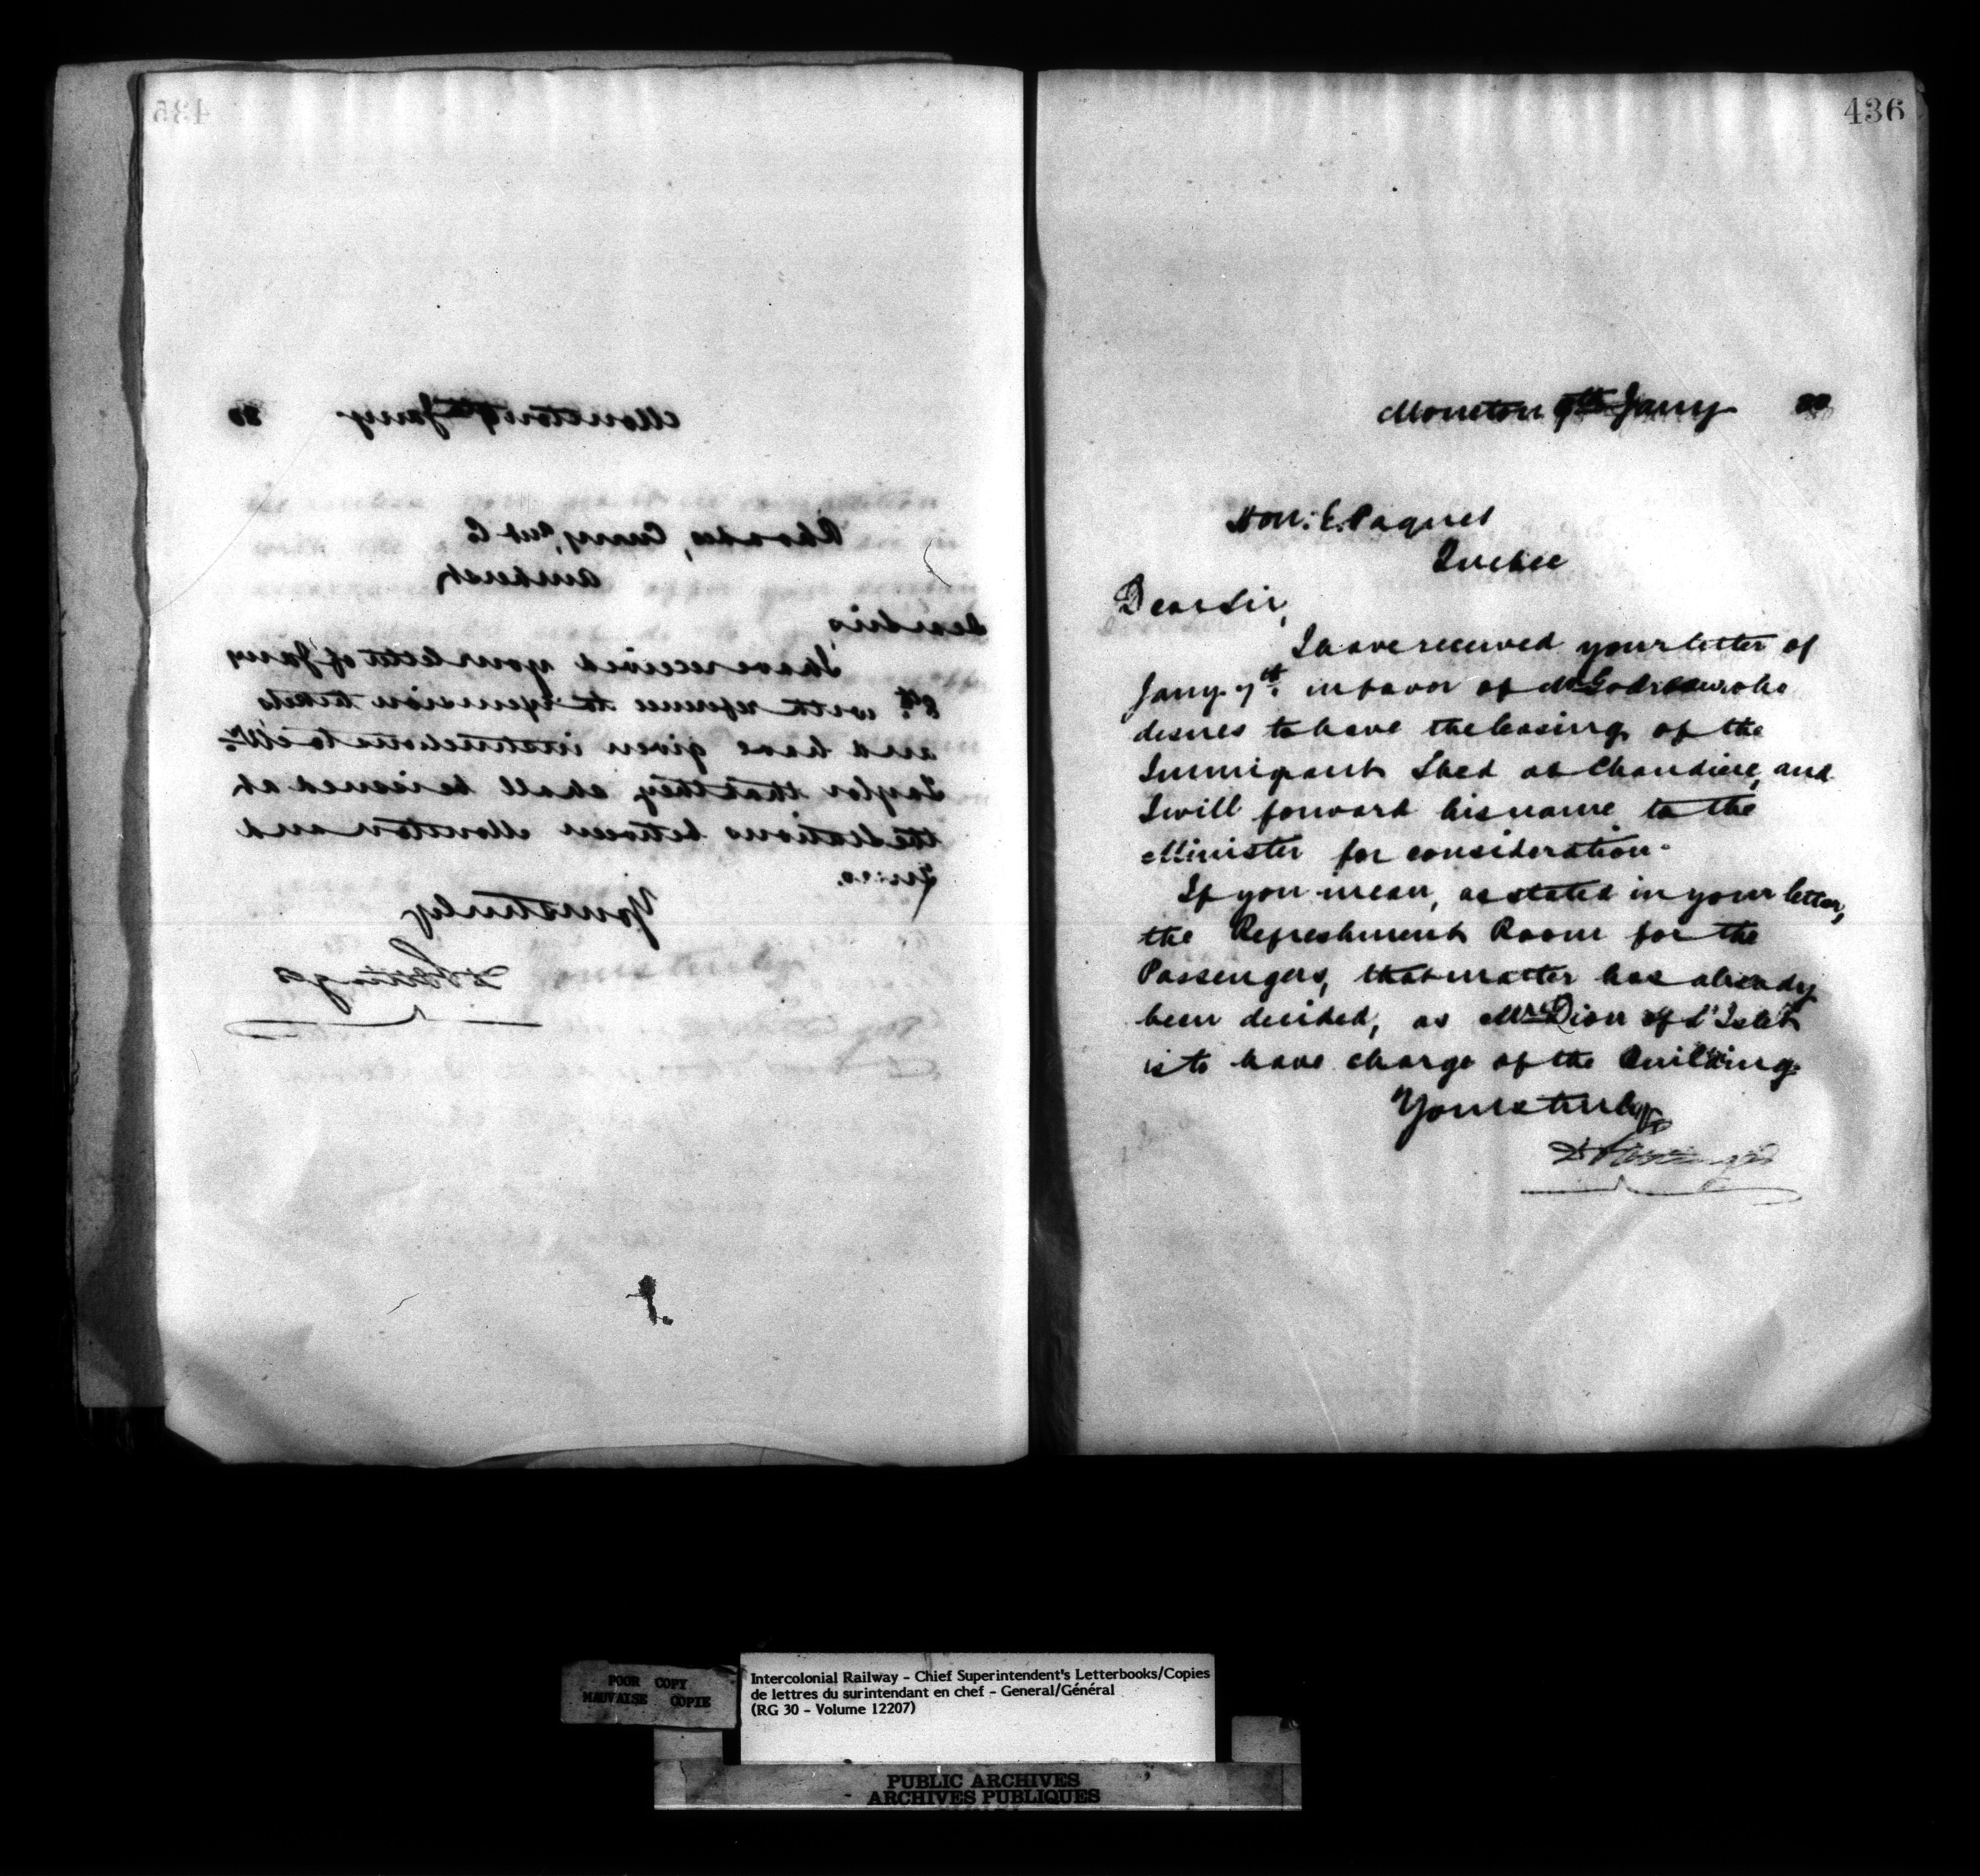 435
Moncton 9th Jany 80
Rhodes, Curry, and Co
Amherst
Dear Sirs
I have received your letter of Jany
8th. with reference to Excursion tickets
and have given instructions to Mr
Taylor that they shall be issued at
the Stations between Moncton and
Truro.
Yours truly
D Pottinger
436
Moncton 9th Jany
Hon. E. Paquet
Quebec
Dear Sir,
I have received your letter of
Jany. 7th. in favor of Mr who
desires to have the leasing of the
Immigrant Shed at Chaudiere, and
I will forward his name to the
Minister for consideration.
If you mean, as stated in your letter,
the Refreshment Room for the
Passengers, that matter has already
been decided, as Mr Dion of L'Islet
is to have charge of the Building.
Yours truly
D Pottinger
POOR COPY
MAUVAISE COPIE
Intercolonial Railway - Chief Superintendent's Letterbooks/Copies
de lettres du surintendant en chef - General/Général
(RG 30 - Volume 12207)
PUBLIC ARCHIVES
ARCHIVES PUBLIQUES